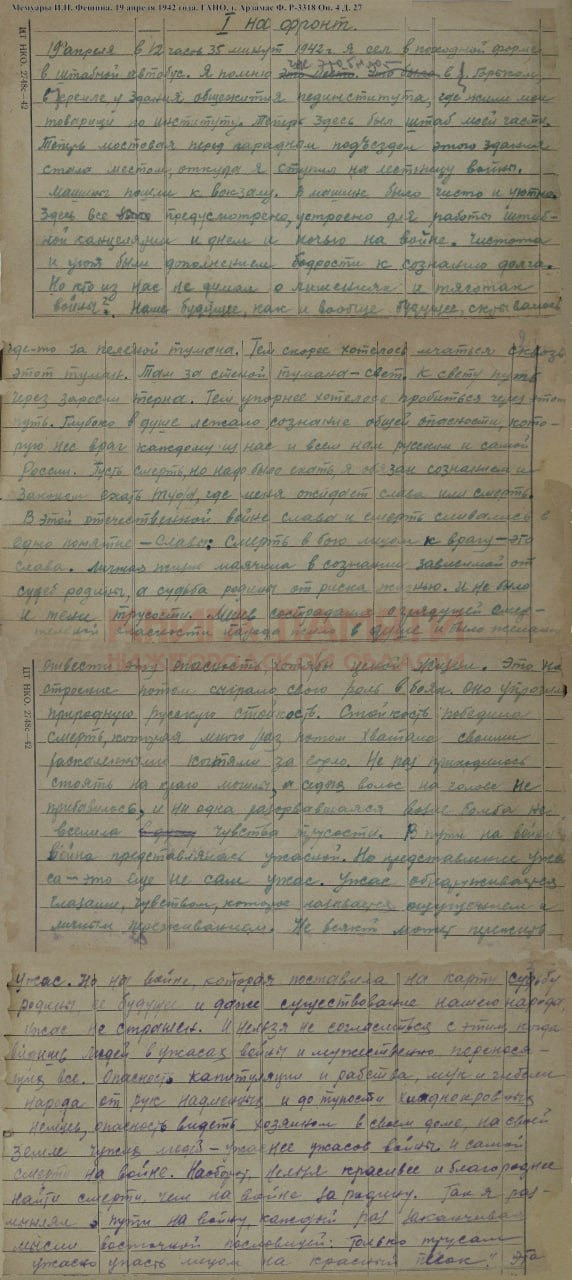 Мемуары И.И. Фешина. 19 апреля 1942 года. ГАНО, г. Арзамас Ф. Р-3318 Оп. 4 Д. 27
I на фронт.
19 апреля в 12 часов 35 минут 1942 г. я сел в походной форме
в штабной автобус. Я помню где это было в г. Горьком
в кремле, у здания общежития пединститута, где жили мои
товарищи по институту. Теперь здесь был штаб моей части.
Теперь мостовая перед парадным подъездом этого здания
стала местом, откуда я ступил на лестницу войны.
Машины пошли к вокзалу. В машине было чисто и уютно.
Здесь все предусмотрено, устроено для работы штаб-
ной канцелярии и днем и ночью на войне. Чистота
и уют были дополнением бодрости к сознанию долга.
Но кто из нас не думал о лишениях и тяготах
войны? Наше будущее, как и вообще будущее, скрывалось
где-то за пеленой тумана. Тем скорее хотелось мчаться сквозь
этот туман. Там за стеной тумана – свет. К свету путь
через заросли терна. Тем упорнее хотелось пробиться через этот
путь. Глубоко в душе лежало сознание общей опасности, кото-
рую нес враг каждому из нас и всем нам русским и самой
России. Пусть смерть, но надо было ехать, я обязан сознанием и
законом ехать туда, где меня ожидает слава или смерть.
В этой отечественной войне слава и смерть сливались в
одно понятие – Слава: Смерть в бою лицом к врагу – это
слава. Личная жизнь маячила в сознании зависимой от
судеб родины, а судьба родины от риска жизнью. И не было
и тени трусости. Лишь сострадание о грядущей смер-
тельной опасности народа было в душе и было желание
отвести эту опасность хотябы ценой жизни. Это на-
строение потом сыграло свою роль в боях. Оно упрочило
природную русскую стойкость. Стойкость победила
смерть, которая много раз потом хватала своими
раскаленными когтями за горло. Не раз приходилось
стоять на краю могилы, а седых волос на голове не
прибавилось, и ни одна разорвавшаяся возле бомба не
вселила чувства трусости. В пути на войну
война представлялась ужасной. Но представление ужа-
са – это еще не сам ужас. Ужас обнаруживается
глазами, чувством, которое называется ощущением и
личным переживанием. Не всякий может пережить
ужас. Но на войне, которая поставила на карту судьбу
родины, ее будущее и даже существование нашего народа,
ужас не страшен. И нельзя не согласиться с этим, когда
видишь людей в ужасах войны и мужественно перенося-
щих все. Опасность капитуляции и рабства, мук и гибели
народа от рук надменных и до тупости хладнокровных
немцев, опасность видеть хозяином в своем доме, на своей
земле чужих людей – ужаснее ужасов войны и самой
смерти на войне. Наоборот, нельзя красивее и благороднее
найти смерти, чем на войне за родину. Так я раз-
мышлял в пути на войну, каждый раз заканчивая
мысли восточной пословицей: „Только трусам
ужасно упасть лицом на красный песок." Эта
ЦГ НКО. 2748с.–42
ЦГ НКО. 2748с–42
НИЖЕГОРОДСКОЙ ОБЛАСТИ